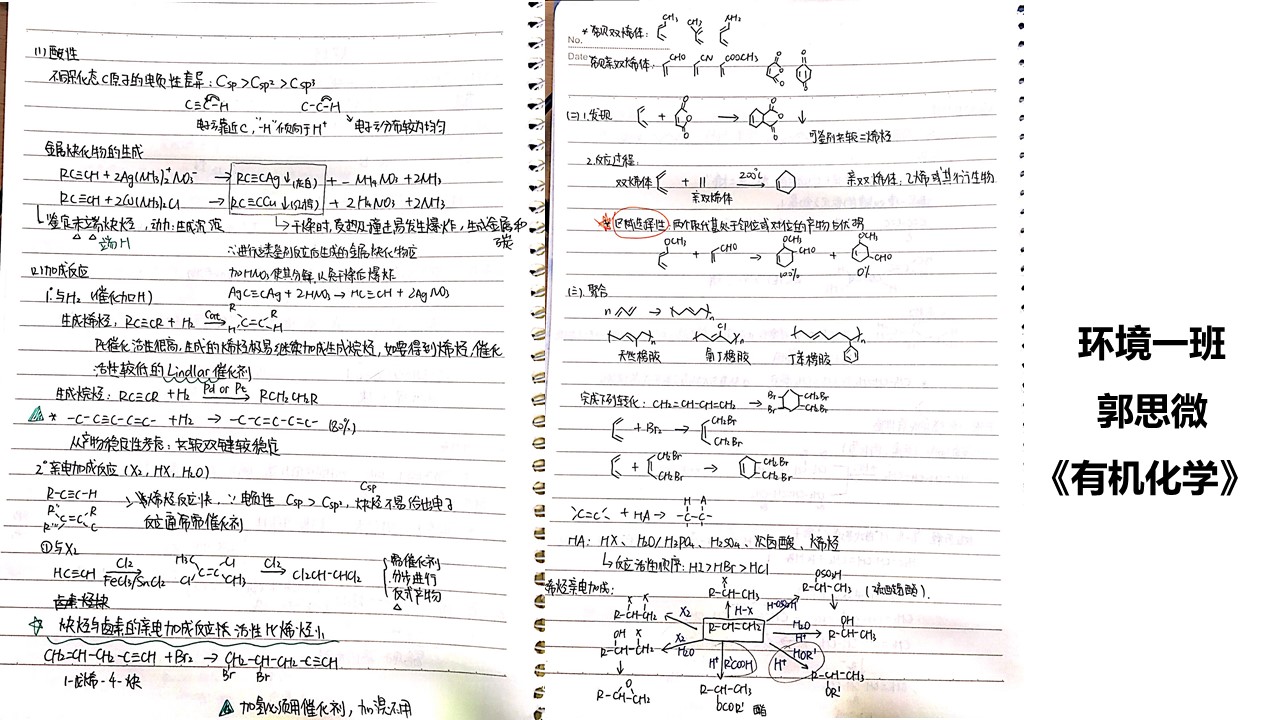 (1) 酸性
不同杂化态C原子的电负性差异：Csp > Csp² > Csp³
C≡C-H C-C-H
电子云靠近C，"-H"倾向于H⁺ 电子云分布较为均匀
金属炔化物的生成
RC≡CH + 2Ag(NH₃)₂⁺NO₃⁻ → RC≡CAg↓(灰白) + NH₄NO₃ + 2NH₃
RC≡CH + 2Cu(NH₃)₂Cl → RC≡CCu↓(红棕) + 2NH₄NO₃ + 2NH₃
鉴定末端炔烃，动力：生成沉淀 干燥时，受热及撞击易发生爆炸，生成金属和碳
端H
∴进行这类鉴别反应后生成的金属炔化物应
加HNO₃使其分解，以免干燥后爆炸
AgC≡CAg + 2HNO₃ → HC≡CH + 2AgNO₃
(2) 加成反应
1°与H₂ (催化加H)
生成烯烃，RC≡CR + H₂ Cat R H C=C R H
Pt催化活性很高，生成的烯烃极易继续加成生成烷烃，如要得到烯烃，催化
活性较低的Lindlar催化剂
生成烷烃：RC≡CR + H₂ Pd or Pt RCH₂CH₂R
* -C-C≡C-C=C- + H₂ → -C-C=C-C=C- (80%)
从产物稳定性考虑：共轭双键较稳定
2°亲电加成反应 (X₂, HX, H₂O)
R-C≡C-H
烯烃反应快，∵电负性 Csp > Csp²，炔烃不易给出电子
Csp
反应通常需催化剂
①与X₂
HC≡CH Cl₂ FeCl₃/SnCl₂ H₃C Cl C=C Cl CH₃ Cl₂ Cl₂CH-CHCl₂
需催化剂
分步进行
反式产物
卤素 烃炔
炔烃与卤素的亲电加成反应活性比烯烃小
CH₂=CH-CH₂-C≡CH + Br₂ → CH₂-CH-CH₂-C≡CH
Br Br
1-戊烯-4-炔
加氢必须用催化剂，加溴不用
No.
Date
*常见双烯体： CH₃ CH₃ NH₂
常见亲双烯体： CHO CN COOCH₃
(二) 1.发现
可鉴别共轭二烯烃
2.反应过程
双烯体 + 200℃
亲双烯体
亲双烯体：乙烯或其衍生物
*区域选择性：两个取代基处于邻位或对位的产物占优势
OCH₃ + CHO → OCH₃ CHO + OCH₃ CHO
100% 0%
(三). 聚合
n → n
n Cl n n
天然橡胶 氯丁橡胶 丁苯橡胶
完成下列转化：CH₂=CH-CH=CH₂ → Br Br CH₂Br CH₂Br
+ Br₂ → CH₂Br CH₂Br
+ CH₂Br CH₂Br → CH₂Br CH₂Br
C=C + HA → H A -C-C-
HA：HX、H₂O/H₃PO₄、H₂SO₄、次卤酸、烯烃
反应活性顺序：HI > HBr > HCl
烯烃亲电加成：
X R-CH-CH₃
OSO₃H R-CH-CH₃ (硫酸氢酯).
X X R-CH-CH₂ X₂ R-CH=CH₂ H-X H-OSO₃H
OH X R-CH-CH₂ X₂ H₂O
H₂O H⁺ OH R-CH-CH₃
HOR' H⁺ R-CH-CH₃ OR'
H⁺ R'COOH
R-CH-CH₂ O
R-CH-CH₃ OCOR' 酯
环境一班
郭思微
《有机化学》